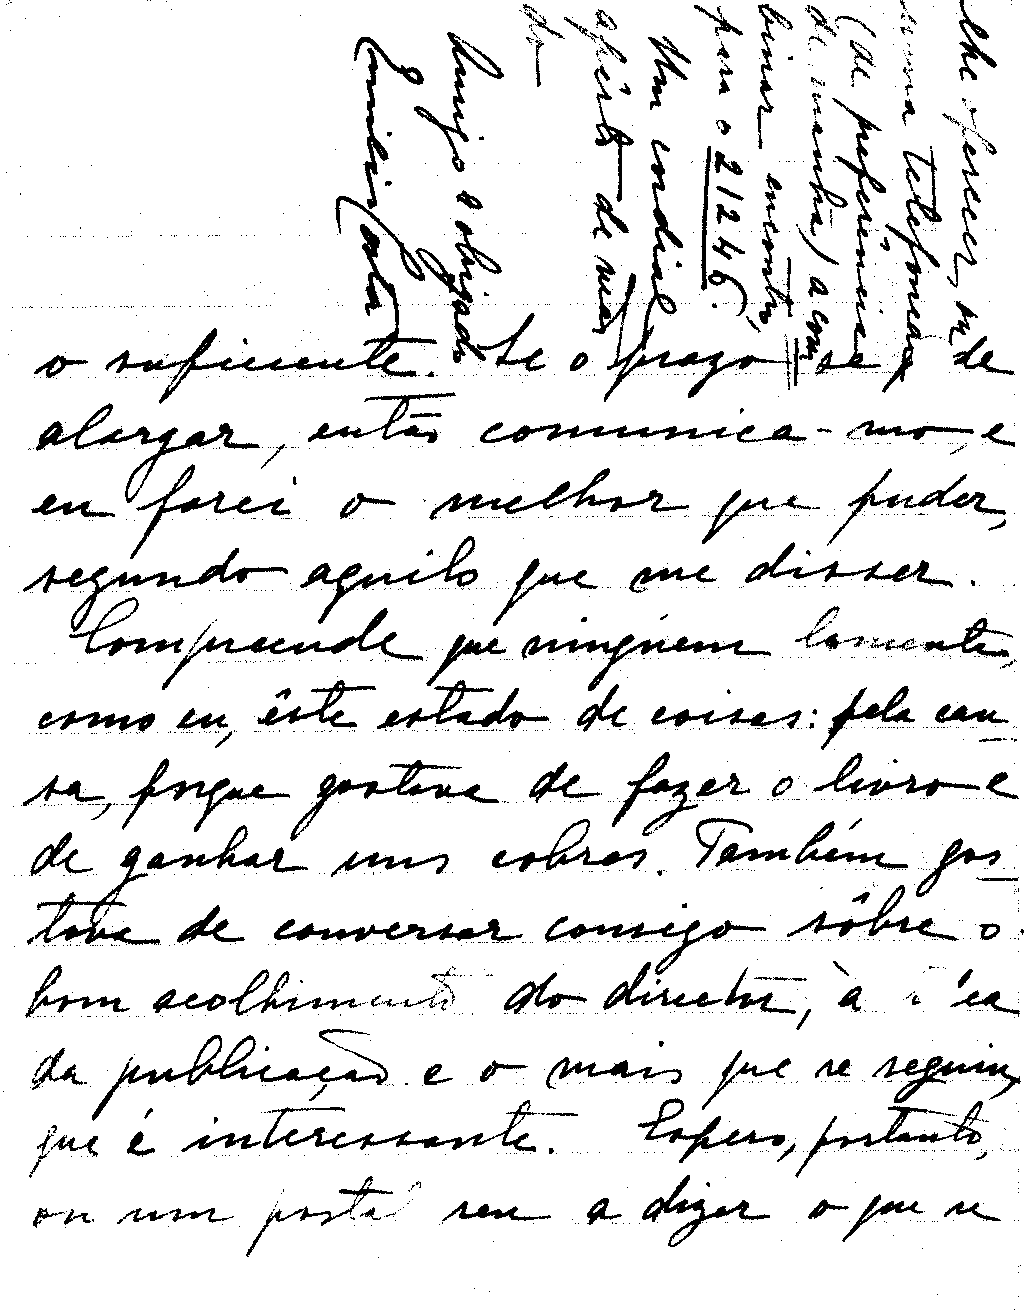 o suficiente. Se o prazo se de
alargar, então comunica-mo, e
eu farei o melhor que puder,
segundo aquilo que me disser.
Compreende que ninguém lamenta,
como eu, êste estado de coisas: pela cau
sa, porque gostava de fazer o livro e
de ganhar uns cobres. Também gos
tava de conversar consigo sôbre o
bom acolhimento do director, à
da publicação e o mais que se seguiu,
que é interessante. Espero, portanto,
ou um postal seu a dizer o que se
lhe oferecer, ou
numa telefonada
(de preferência
de manhã) a com
binar encontro,
para o 21246.
Um cordial
apêrto de mão
do
Amigo e obrigado
Emílio Costa